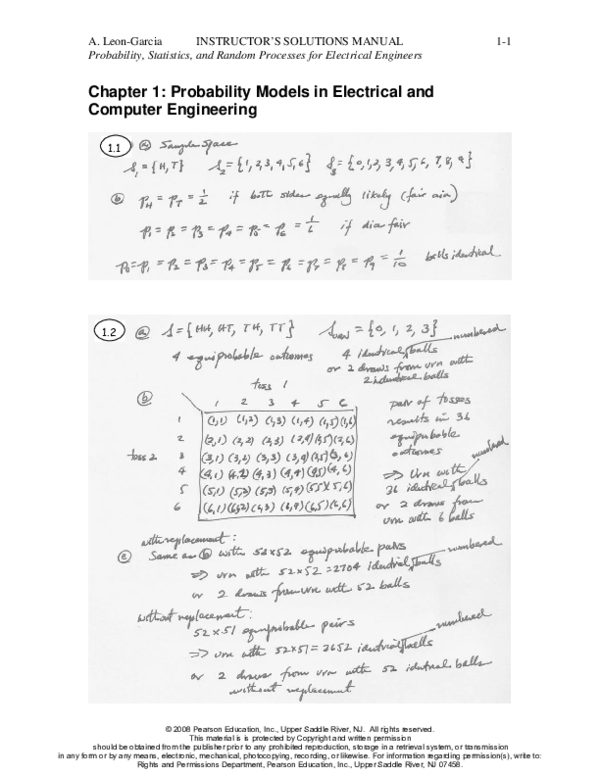 A. Leon-Garcia INSTRUCTOR'S SOLUTIONS MANUAL 1-1
Probability, Statistics, and Random Processes for Electrical Engineers
Chapter 1: Probability Models in Electrical and
Computer Engineering
1.1 ⓐ Sample Space
S₁ = {H, T} S₂ = {1, 2, 3, 4, 5, 6} S₃ = {0, 1, 2, 3, 4, 5, 6, 7, 8, 9}
ⓑ p_H = p_T = 1/2 if both sides equally likely (fair coin)
p₁ = p₂ = p₃ = p₄ = p₅ = p₆ = 1/6 if die fair
p₀ = p₁ = p₂ = p₃ = p₄ = p₅ = p₆ = p₇ = p₈ = p₉ = 1/10 balls identical
1.2 ⓐ S = {HH, HT, TH, TT} S_urn = {0, 1, 2, 3} numbered
4 equiprobable outcomes 4 identical balls
or 2 draws from urn with
2 identical balls
toss 1
ⓑ 1 2 3 4 5 6 pair of tosses
1 (1,1) (1,2) (1,3) (1,4) (1,5) (1,6) results in 36
2 (2,1) (2,2) (2,3) (2,4) (2,5) (2,6) equiprobable
toss 2 3 (3,1) (3,2) (3,3) (3,4) (3,5) (3,6) outcomes numbered
4 (4,1) (4,2) (4,3) (4,4) (4,5) (4,6) ⇒ Urn with
5 (5,1) (5,2) (5,3) (5,4) (5,5) (5,6) 36 identical balls
6 (6,1) (6,2) (6,3) (6,4) (6,5) (6,6) or 2 draws from
urn with 6 balls
with replacement:
ⓒ Same as ⓑ with 52×52 equiprobable pairs numbered
⇒ urn with 52×52 = 2704 identical balls
or 2 draws from urn with 52 balls
without replacement:
52×51 equiprobable pairs numbered
⇒ urn with 52×51 = 2652 identical balls
or 2 draws from urn with 52 identical balls
without replacement
© 2008 Pearson Education, Inc., Upper Saddle River, NJ. All rights reserved.
This material is is protected by Copyright and written permission
should be obtained from the publisher prior to any prohibited reproduction, storage in a retrieval system, or transmission
in any form or by any means, electronic, mechanical, photocopying, recording, or likewise. For information regarding permission(s), write to:
Rights and Permissions Department, Pearson Education, Inc., Upper Saddle River, NJ 07458.